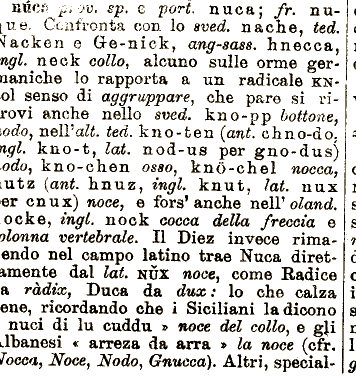 núca prov. sp. e port. nuca; fr. nu-
que. Confronta con lo sved. nache, ted.
Nacken e Ge-nick, ang-sass. hnecca,
ingl. neck collo, alcuno sulle orme ger-
maniche lo rapporta a un radicale KN-
col senso di aggruppare, che pare si ri-
trovi anche nello sved. kno-pp bottone,
nodo, nell'alt. ted. kno-ten (ant. chno-do,
ingl. kno-t, lat. nod-us per gno-dus)
nodo, kno-chen osso, knö-chel nocca,
nutz (ant. hnuz, ingl. knut, lat. nux
per cnux) noce, e fors' anche nell' oland.
nocke, ingl. nock cocca della freccia e
colonna vertebrale. Il Diez invece rima-
nendo nel campo latino trae Nuca diret-
tamente dal lat. NŬX noce, come Radice
da ràdix, Duca da dux: lo che calza
bene, ricordando che i Siciliani la dicono
« nuci di lu cuddu » noce del collo, e gli
Albanesi « arreza da arra » la noce (cfr.
Nocca, Noce, Nodo, Gnucca). Altri, special-